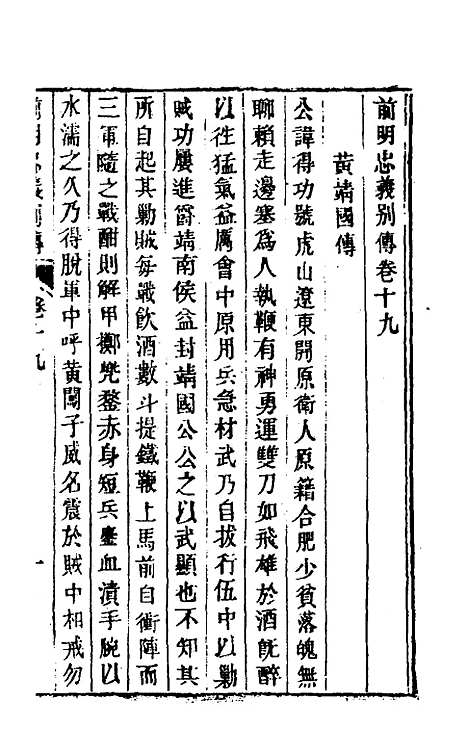 前明忠義别傳卷十九
黄靖國傳
公諱得功號虎山遼東開原衛人原籍合肥少貧落魄無
聊賴走邊塞為人執鞭有神勇運雙刀如飛雄於酒旣醉
以徃猛氣益厲會中原用兵急材武乃自拔行伍中以勦
賊功屢進爵靖南侯益封靖國公公之以武顯也不知其
所自起其勦賊每戰飲酒數斗提鐵鞭上馬前自衝陣而
三軍隨之戰酣則解甲擲兜鍪赤身短兵鏖血漬手腕以
水濡之久乃得脱軍中呼黄闖子威名震於賊中相戒勿
前明忠義别傳
卷十九
一